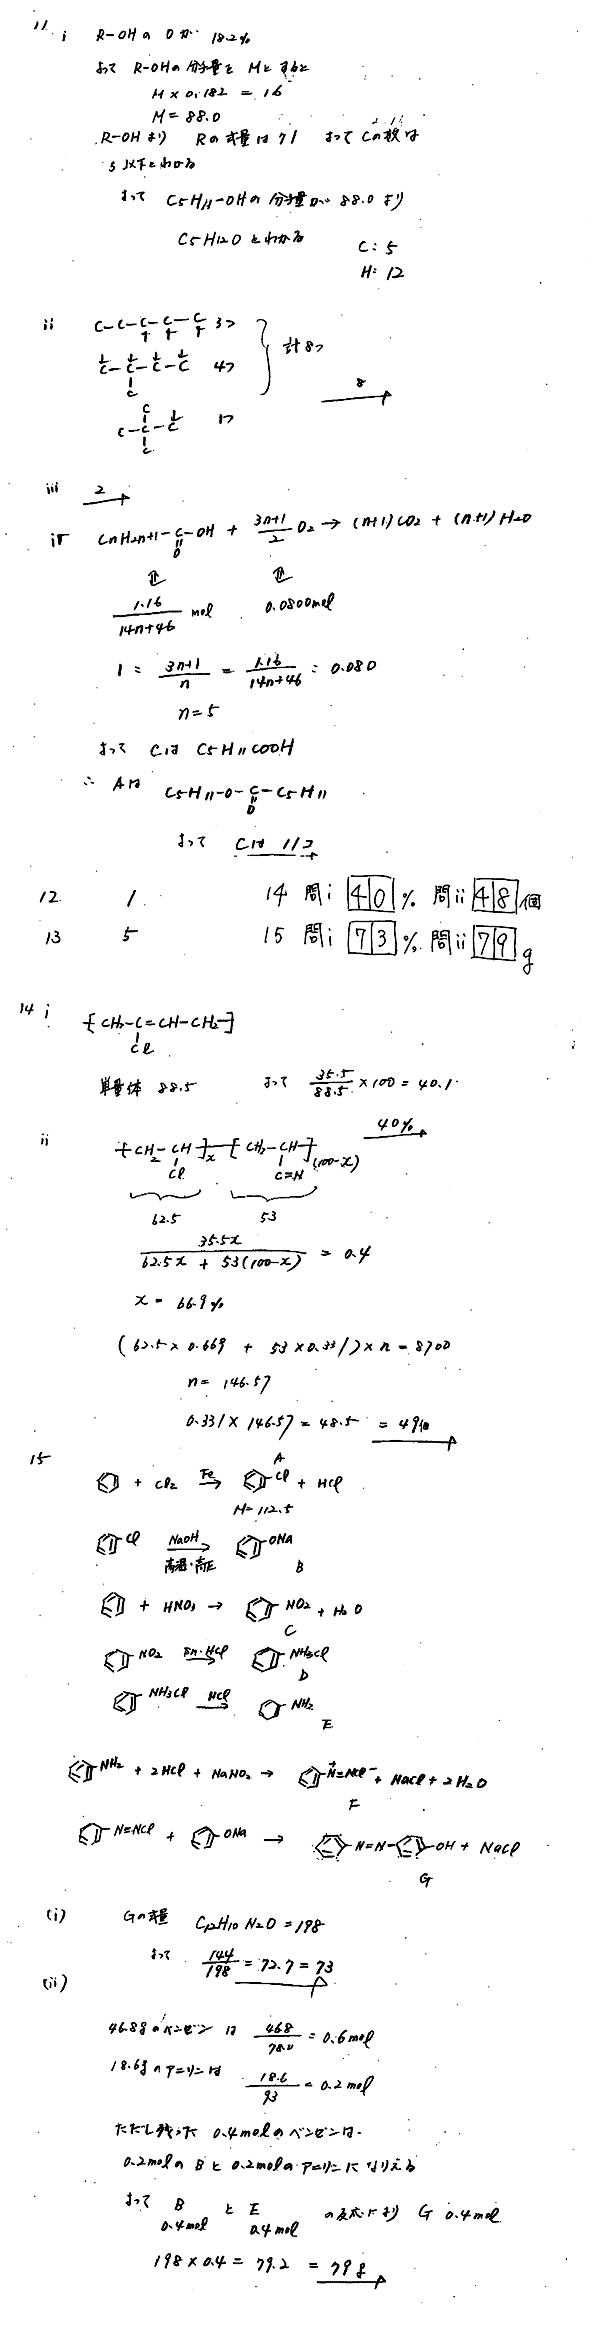 11 i R-OHの Oが 18.2%
よって R-OHの分子量を Mと すると
M × 0.182 = 16
M = 88.0
R-OHより Rの式量は71 よって Cの数は
5以下とわかる
よって C5H11-OHの 分子量が 88.0 より
C5H12O とわかる
C: 5
H: 12
ii C-C-C-C-C 3つ
C-C-C-C 4つ
C
計8つ
8
C
C-C-C 1つ
C
iii 2
iv CnH2n+1-C-OH + 3n+1/2 O2 → (n+1)CO2 + (n+1)H2O
O
⇕ ⇕
1.16/14n+46 mol 0.0800mol
1 : 3n+1/n = 1.16/14n+46 : 0.080
n=5
よって Cは C5H11COOH
∴ Aは C5H11-O-C-C5H11
O
よって Cは 11コ
12 1
13 5
14 問i 40% 問ii 48個
15 問i 73% 問ii 79g
14 i [CH2-C=CH-CH2]
Cl
単量体 88.5 よって 35.5/88.5 ×100 = 40.1
40%
ii [CH2-CH]x[CH2-CH](100-x)
Cl C≡N
62.5 53
35.5x/62.5x + 53(100-x) = 0.4
x = 66.9%
(62.5×0.669 + 53×0.331)×n = 8700
n= 146.57
0.331× 146.57 = 48.5 = 49個
15
+ Cl2 Fe→ Cl + HCl
A
M=112.5
Cl NaOH→ ONa
高温・高圧 B
+ HNO3 → NO2 + H2O
C
NO2 Sn・HCl→ NH3Cl
D
NH3Cl HCl→ NH2
E
NH2 + 2HCl + NaNO2 → N+≡NCl- + NaCl + 2H2O
F
N=NCl + ONa → N=N-OH + NaCl
G
(i) Gの式量 C12H10N2O = 198
よって 144/198 = 72.7 = 73
(ii)
46.8gのベンゼン は 46.8/78.0 = 0.6mol
18.6gのアニリンは 18.6/93 = 0.2mol
ただし残った 0.4molのベンゼンは
0.2molの Bと 0.2molのアニリンに なりえる
よって B と E の反応により G 0.4mol
0.4mol 0.4mol
198 × 0.4 = 79.2 = 79g